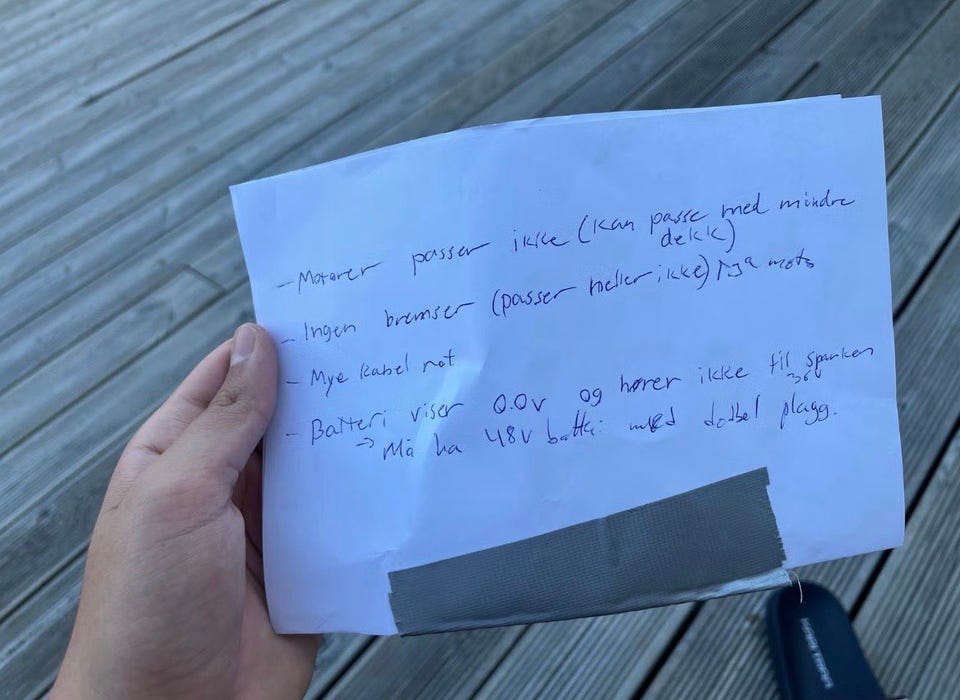 - Motorer passer ikke (kan passe med mindre
dekk)
- Ingen bremser (passer heller ikke) på moto
- Mye kabel rot
- Batteri viser 0.0v og hører ikke til sparken
36V
→ Må ha 48V batteri med dobbel plagg.